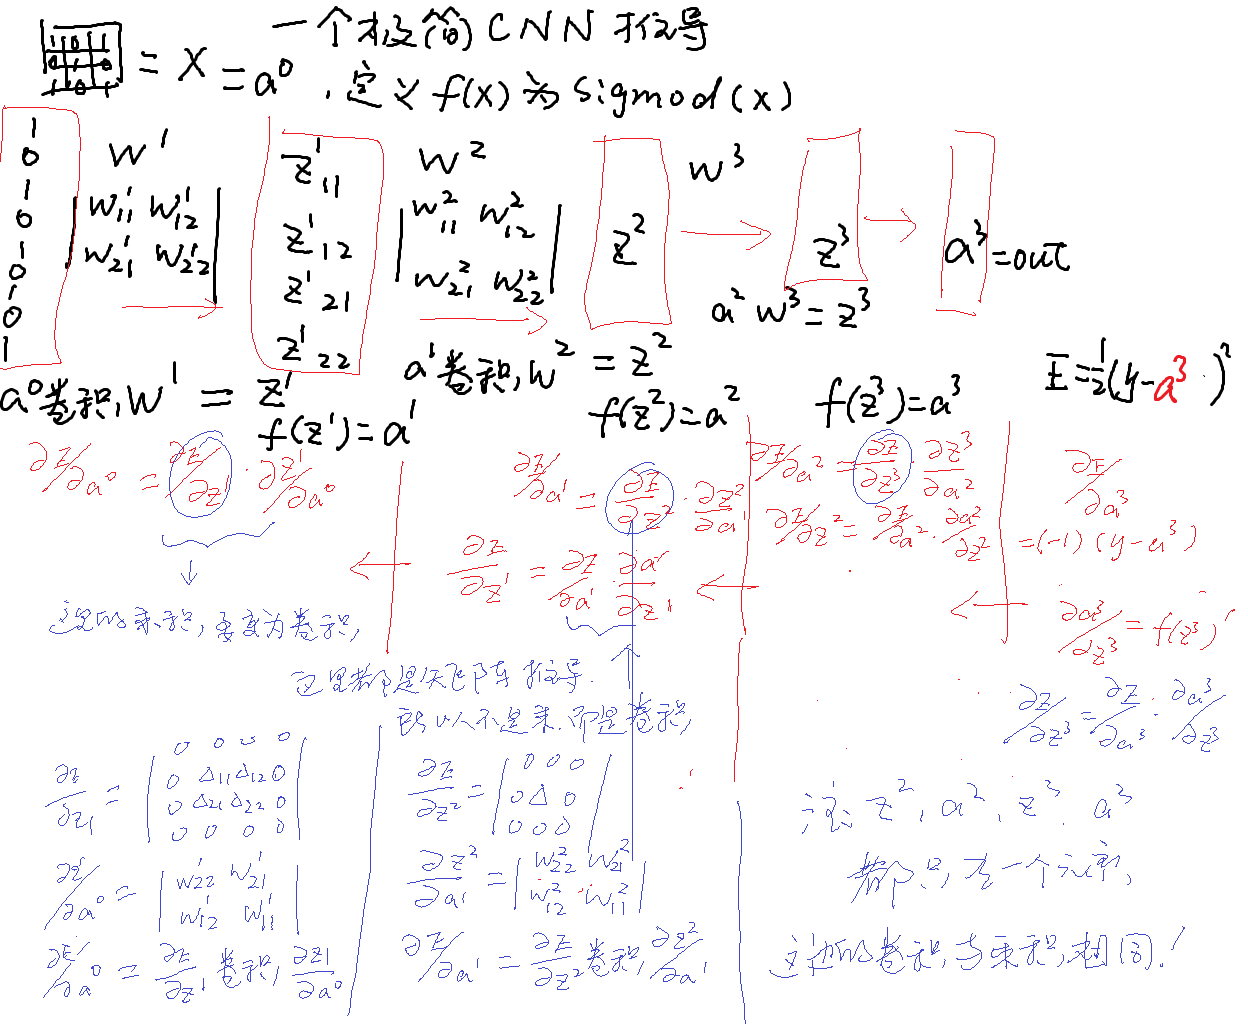 一个极简CNN推导
1 0 1
0 1 0
1 0 1
= X = a⁰ . 定义 f(x) 为 Sigmod(x)
1
0
1
0
1
0
1
0
1
W¹
w¹₁₁ w¹₁₂
w¹₂₁ w¹₂₂
z¹₁₁
z¹₁₂
z¹₂₁
z¹₂₂
W²
w²₁₁ w²₁₂
w²₂₁ w²₂₂
z²
w³
z³
a³ = out
a² w³ = z³
a⁰卷积W¹ = z¹
f(z¹) = a¹
a¹卷积W² = z²
f(z²) = a²
f(z³) = a³
E = ½(y - a³)²
∂E/∂a⁰ = ∂E/∂z¹ · ∂z¹/∂a⁰
这里的乘积,要变为卷积,
∂E/∂a¹ = ∂E/∂z² · ∂z²/∂a¹
∂E/∂z¹ = ∂E/∂a¹ · ∂a¹/∂z¹
这里都是矩阵推导.
所以不是乘.而是卷积,
∂E/∂a² = ∂E/∂z³ · ∂z³/∂a²
∂E/∂z² = ∂E/∂a² · ∂a²/∂z²
∂E/∂a³
= (-1)(y - a³)
∂a³/∂z³ = f(z³)'
∂E/∂z³ = ∂E/∂a³ · ∂a³/∂z³
∂E/∂z₁ =
0 0 0 0
0 Δ₁₁ Δ₁₂ 0
0 Δ₂₁ Δ₂₂ 0
0 0 0 0
∂z¹/∂a⁰ =
w¹₂₂ w¹₂₁
w¹₁₂ w¹₁₁
∂E/∂a⁰ = ∂E/∂z¹ 卷积 ∂z1/∂a⁰
∂E/∂z² =
0 0 0
0 Δ 0
0 0 0
∂z²/∂a¹ =
w²₂₂ w²₂₁
w²₁₂ w²₁₁
∂E/∂a¹ = ∂E/∂z² 卷积 ∂z²/∂a¹
注: z², a², z³ a³
都只有一个元素,
这边的卷积与乘积,相同!